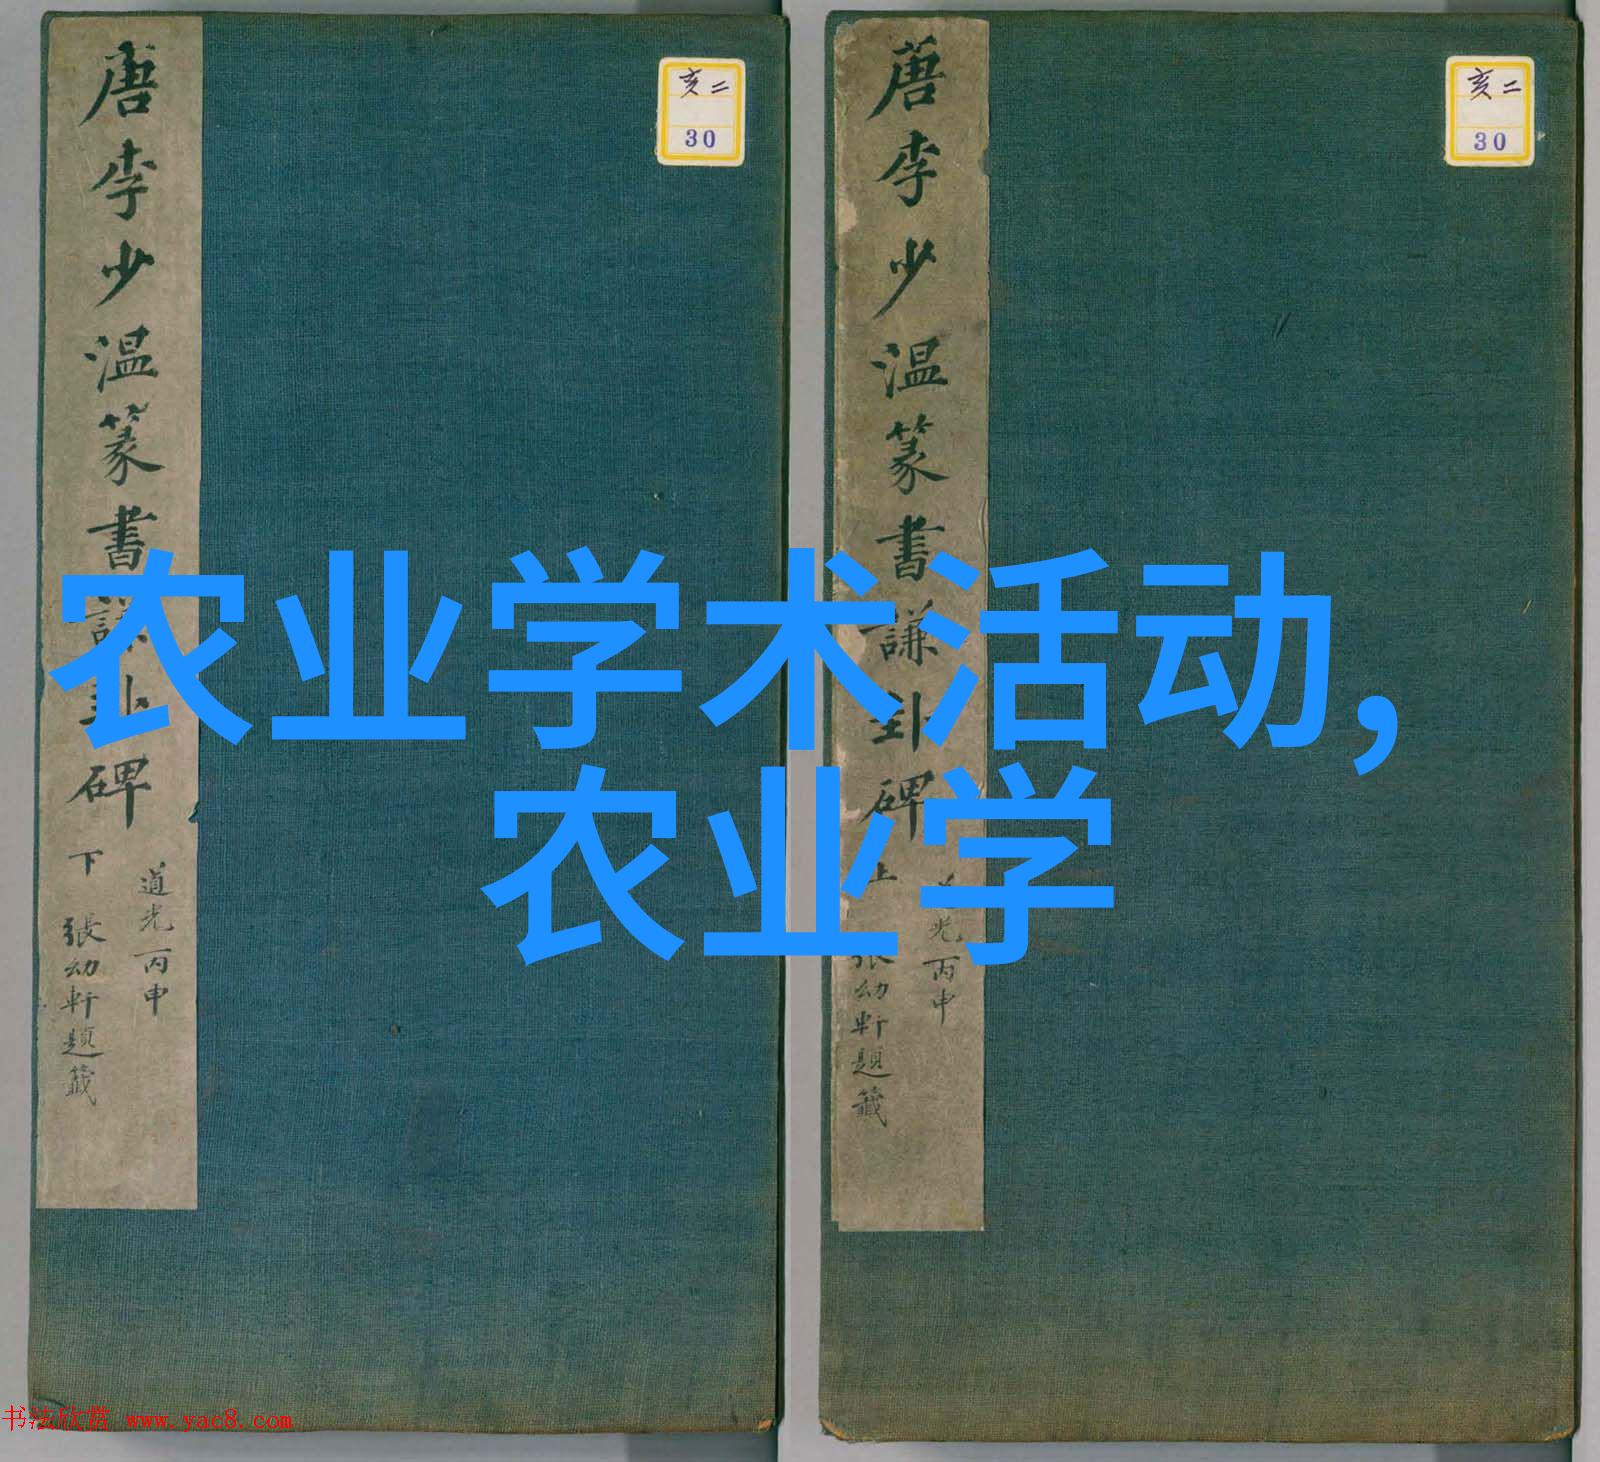 唐李少温篆書謙卦碑 下
道光丙申
張幼軒題籤
亥二
30
唐李少温篆書謙卦碑 上
道光丙申
張幼軒題籤
亥二
30
农业学术活动,
农业学
书法欣赏 www.yac8.com